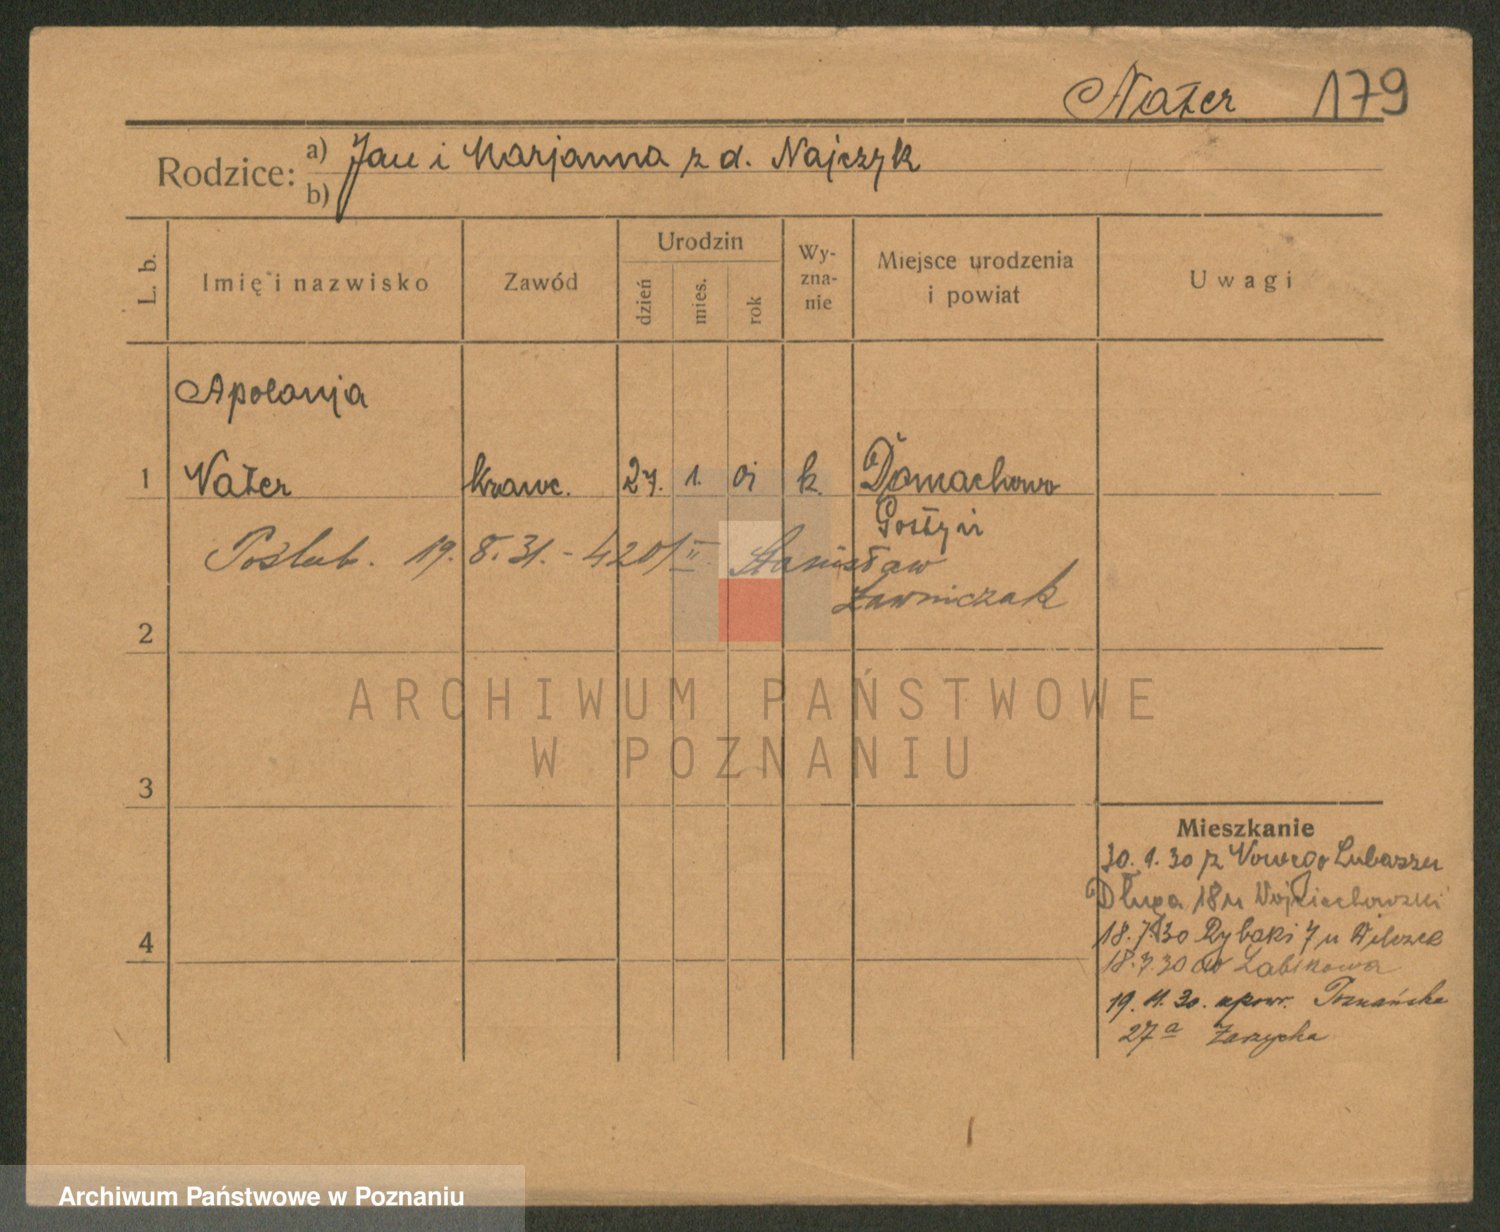 Nażer 179
Rodzice: a) Jan i Marjanna z d. Najczyk
b)
L. b. Imię i nazwisko Zawód Urodzin dzień mies. rok Wy-zna-nie Miejsce urodzenia i powiat Uwagi
Apolonja
1 Nażer krawc. 27. 1. 01 k. Domachowo
Gostyń
Poślub. 19. 8. 31. - 420/II. Stanisław
Ławniczak
2
ARCHIWUM PAŃSTWOWE
W POZNANIU
3
Mieszkanie
30. 1. 30 z Nowego Lubosza
Długa 18 u Wojciechowski
4
18. 7. 30 Rybaki 7 u Wilczek
18. 7. 30 do Żabikowa
19. 11. 30. spowr. Poznańska
27a Zarzycka
Archiwum Państwowe w Poznaniu